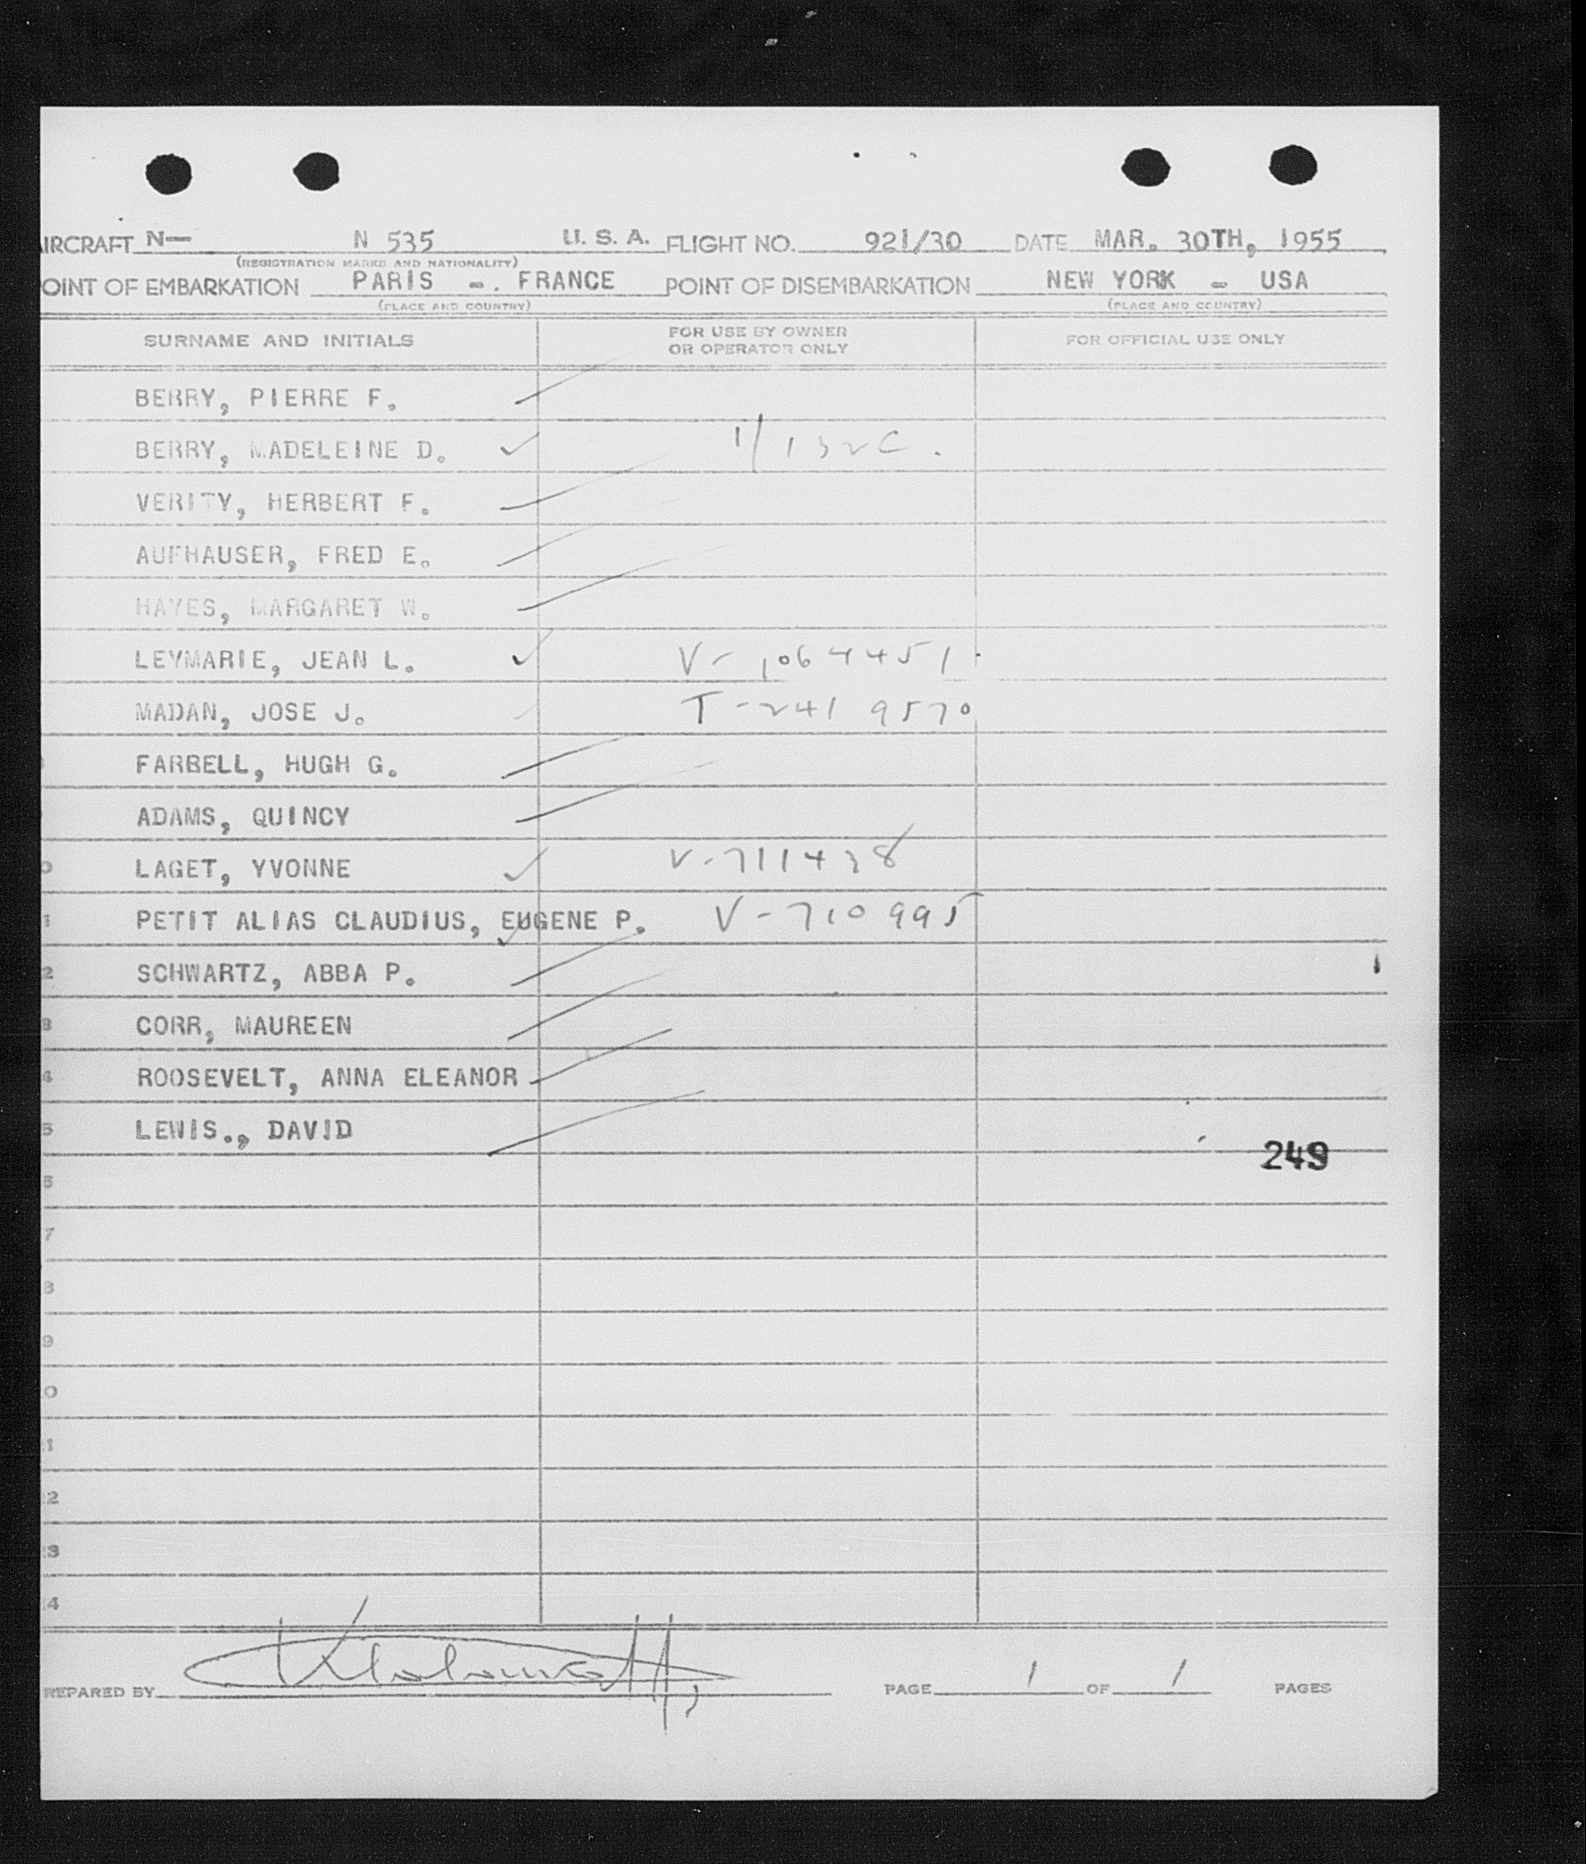 IRCRAFT N— N 535 U. S. A. FLIGHT NO. 921/30 DATE MAR. 30TH, 1955
(REGISTRATION MARKS AND NATIONALITY)
OINT OF EMBARKATION PARIS -. FRANCE POINT OF DISEMBARKATION NEW YORK - USA
(PLACE AND COUNTRY) (PLACE AND COUNTRY)
SURNAME AND INITIALS FOR USE BY OWNER OR OPERATOR ONLY FOR OFFICIAL USE ONLY
BERRY, PIERRE F.
BERRY, MADELEINE D.
VERITY, HERBERT F.
AUFHAUSER, FRED E.
HAYES, MARGARET W.
LEYMARIE, JEAN L. V-1064451
MADAN, JOSE J. T-2419570
FARBELL, HUGH G.
ADAMS, QUINCY
LAGET, YVONNE V-711438
1 PETIT ALIAS CLAUDIUS, EUGENE P. V-710995
2 SCHWARTZ, ABBA P.
3 CORR, MAUREEN
4 ROOSEVELT, ANNA ELEANOR
5 LEWIS., DAVID
249
6
7
8
9
0
1
2
3
4
REPARED BY PAGE 1 OF 1 PAGES